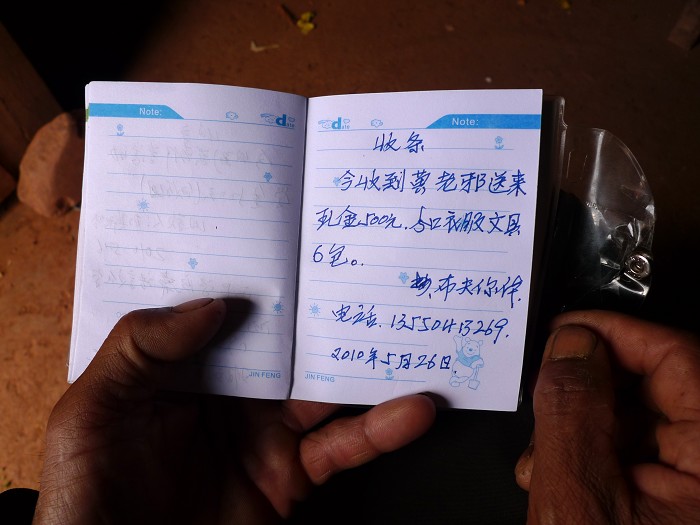 Note:
Note:
收条
今收到黄老邪送来
金500元.与口衣服文具
6包。
布夫你体.
电话.13550413269.
2010年5月26日.
JIN FENG
JIN FENG